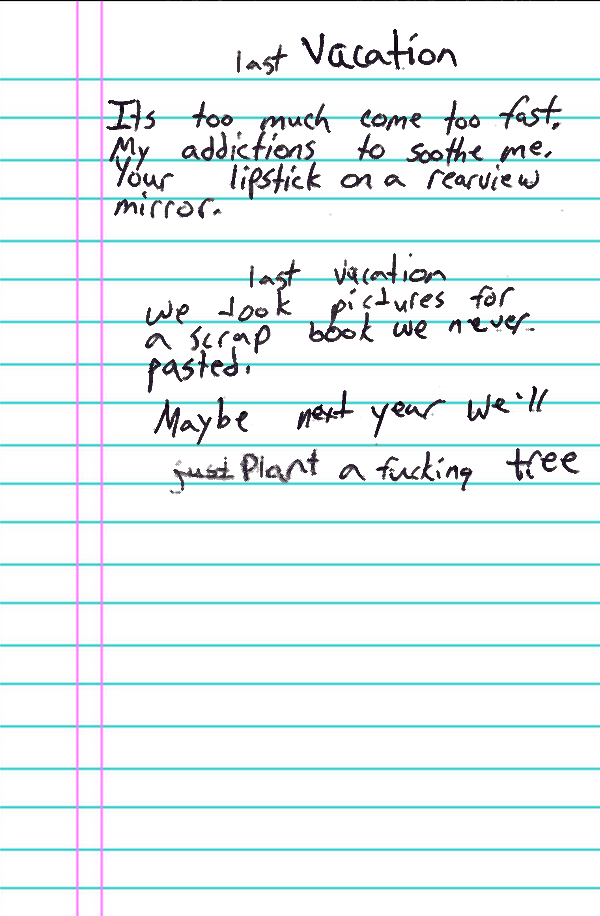 last Vacation
Its too much come too fast.
My addictions to soothe me.
Your lipstick on a rearview
mirror.
last vacation
we took pictures for
a scrap book we never
pasted.
Maybe next year we'll
just Plant a fucking tree